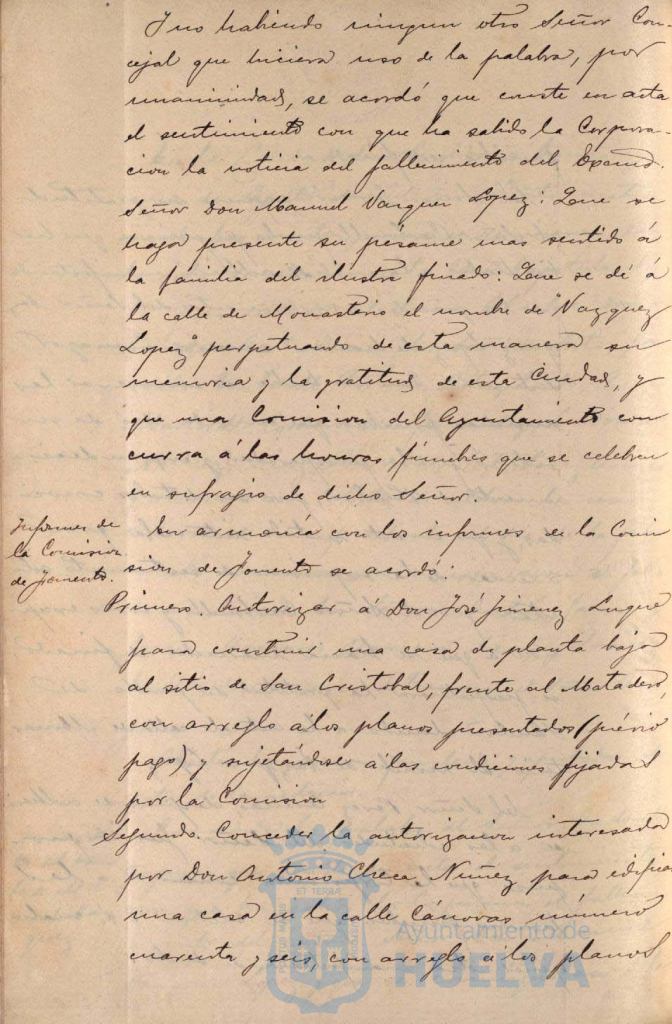 Y no habiendo ningun otro Señor Con-
cejal que hiciera uso de la palabra, por
unanimidad, se acordó que conste en acta
el sentimiento con que ha sabido la Corpora-
cion la noticia del fallecimiento del Excmo.
Señor Don Manuel Vazquez Lopez: Que se
haga presente su pésame mas sentido á
la familia del ilustre finado: Que se dé á
la calle de Monasterio el nombre de "Vazquez
Lopez" perpetuando de esta manera su
memoria y la gratitud de esta Ciudad, y
que una Comision del Ayuntamiento con
curra á las honras fúnebres que se celebren
en sufragio de dicho Señor.
Informes de
la Comision
de Fomento.
En armonía con los informes de la Comi
sion de Fomento se acordó:
Primero. Autorizar á Don José Jimenez Luque
para construir una casa de planta baja
al sitio de San Cristobal, frente al Matadero
con arreglo á los planos presentados (prévio
pago) y sujetándose á las condiciones fijadas
por la Comision
Segundo. Conceder la autorizacion interesada
por Don Antonio Checa Nuñez para edificar
una casa en la calle Cánovas número
cuarenta y seis, con arreglo á los planos
Ayuntamiento de
HUELVA